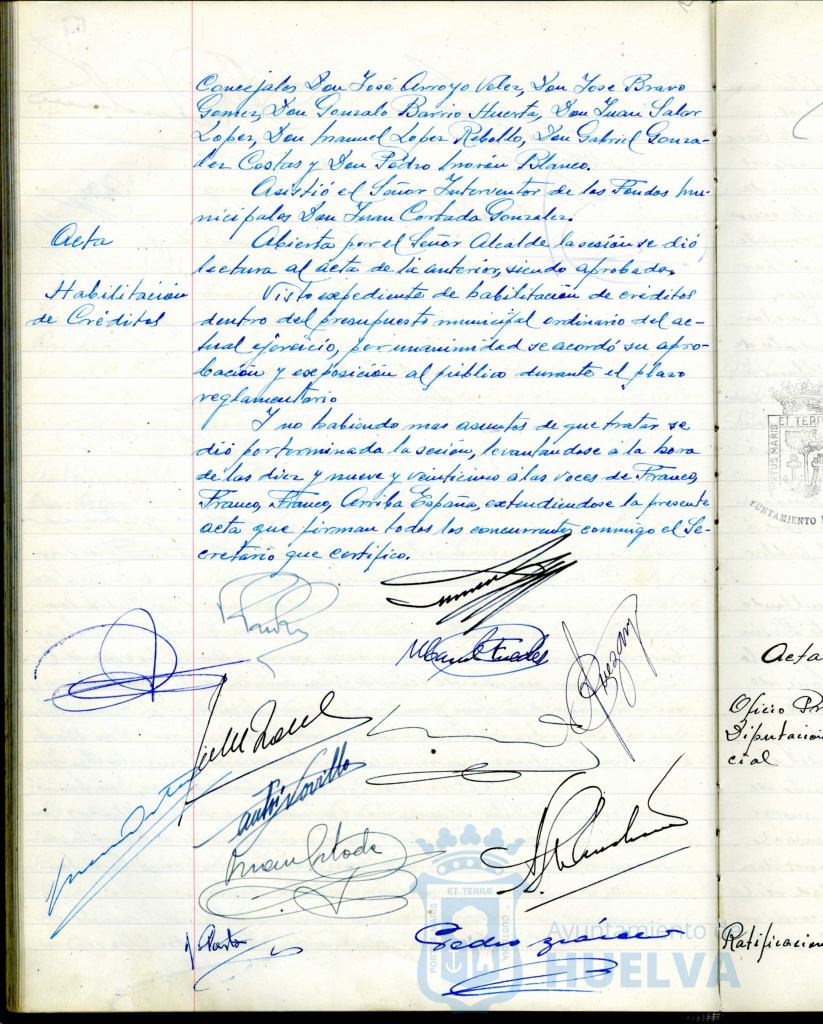 Concejales Don José Arroyo Velez, Don Jose Bravo
Gomez, Don Gonzalo Barrio Huerta, Don Juan Salor
Lopez, Don Manuel Lopez Rebollo, Don Gabriel Gonza-
lez Costas y Don Pedro Morón Blanco.
Asistió el Señor Interventor de los Fondos Mu-
nicipales Don Juan Cortada Gonzalez.
Acta
Abierta por el Señor Alcalde la sesión se dió
lectura al acta de la anterior, siendo aprobada.
Habilitación
de Créditos
Visto expediente de habilitación de créditos
dentro del presupuesto municipal ordinario del ac-
tual ejercicio, por unanimidad se acordó su apro-
bación y exposición al público durante el plazo
reglamentario
Y no habiendo mas asuntos de que tratar se
dió por terminada la sesión, levantandose a la hora
de las diez y nueve y veinticinco a las voces de Franco,
Franco, Franco, Arriba España, extendiendose la presente
acta que firman todos los concurrentes conmigo el Se-
cretario que certifico.
Juan Cortada
Pedro
ET TERRÆ
Ayuntamiento
HUELVA
PORTUS MARIS
ET TERR
Acta
Oficio
Diputacion
cial
Ratificacion